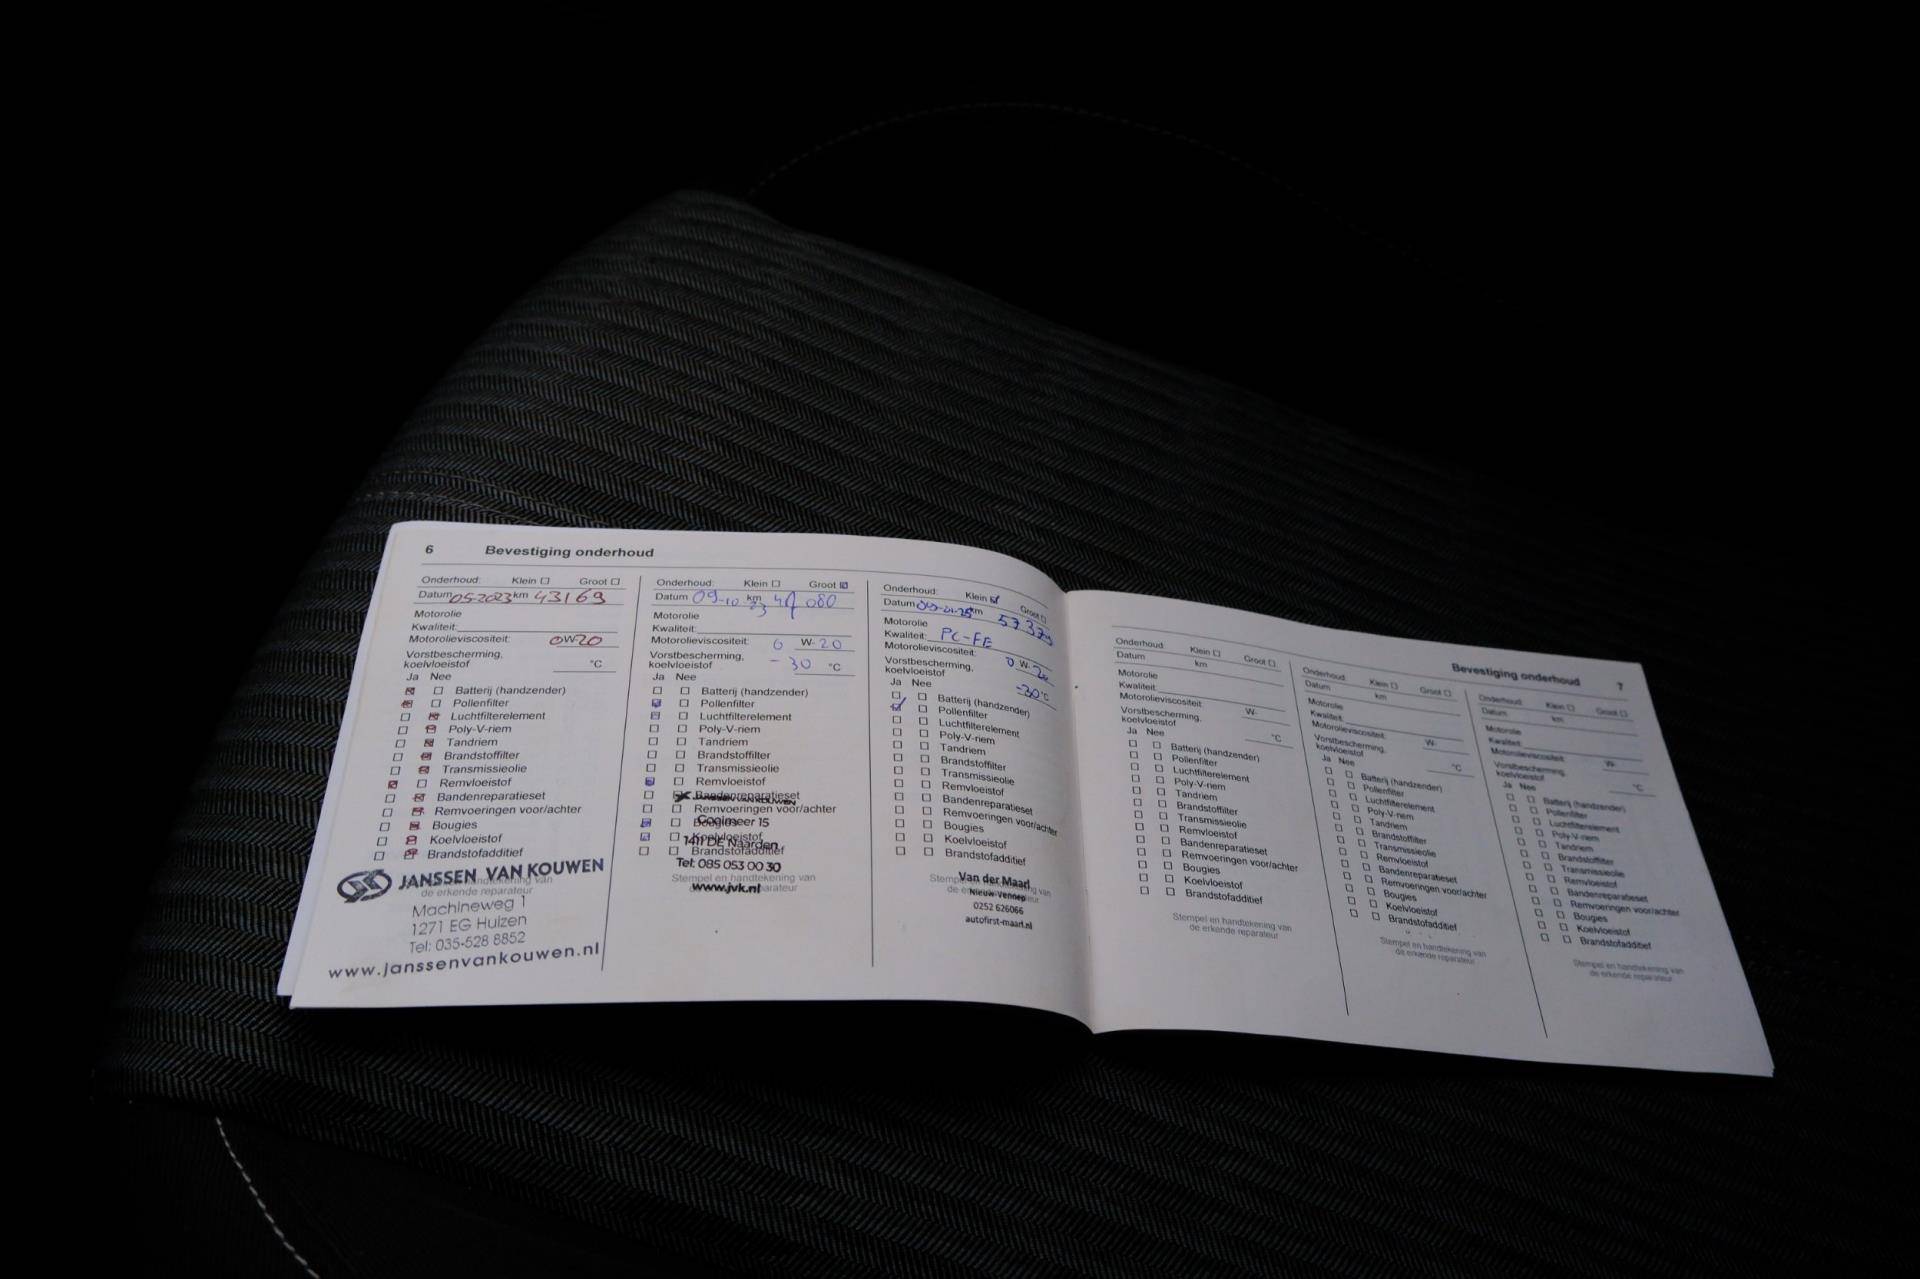 6 Bevestiging onderhoud
Onderhoud: Klein Groot
Datum 05-2023 km 43169
Motorolie
Kwaliteit:
Motorolieviscositeit: 0W-20
Vorstbescherming,
koelvloeistof °C
Ja Nee
Batterij (handzender)
Pollenfilter
Luchtfilterelement
Poly-V-riem
Tandriem
Brandstoffilter
Transmissieolie
Remvloeistof
Bandenreparatieset
Remvoeringen voor/achter
Bougies
Koelvloeistof
Brandstofadditief
JANSSEN VAN KOUWEN
de erkende reparateur
Machineweg 1
1271 EG Huizen
Tel: 035-528 8852
www.janssenvankouwen.nl
Onderhoud: Klein Groot
Datum 09-10 23 km 080
Motorolie
Kwaliteit:
Motorolieviscositeit: 0 W-20
Vorstbescherming,
koelvloeistof -30 °C
Ja Nee
Batterij (handzender)
Pollenfilter
Luchtfilterelement
Poly-V-riem
Tandriem
Brandstoffilter
Transmissieolie
Remvloeistof
Bandenreparatieset
JANSSEN VAN KOUWEN
Remvoeringen voor/achter
Bougies
Gooimeer 15
Koelvloeistof
1411 DE Naarden
Brandstofadditief
Tel: 085 053 00 30
Stempel en handtekening van
www.jvk.nl
Onderhoud: Klein Groot
Datum km 57379
Motorolie
Kwaliteit: PC-FE
Motorolieviscositeit: 0 W-20
Vorstbescherming,
koelvloeistof -30°C
Ja Nee
Batterij (handzender)
Pollenfilter
Luchtfilterelement
Poly-V-riem
Tandriem
Brandstoffilter
Transmissieolie
Remvloeistof
Bandenreparatieset
Remvoeringen voor/achter
Bougies
Koelvloeistof
Brandstofadditief
Van der Maarl
Nieuw-Vennep
0252 626066
autofirst-maarl.nl
Bevestiging onderhoud 7
Onderhoud: Klein Groot
Datum km
Motorolie
Kwaliteit:
Motorolieviscositeit: W-
Vorstbescherming,
koelvloeistof °C
Ja Nee
Batterij (handzender)
Pollenfilter
Luchtfilterelement
Poly-V-riem
Tandriem
Brandstoffilter
Transmissieolie
Remvloeistof
Bandenreparatieset
Remvoeringen voor/achter
Bougies
Koelvloeistof
Brandstofadditief
Stempel en handtekening van
de erkende reparateur
Onderhoud: Klein Groot
Datum km
Motorolie
Kwaliteit:
Motorolieviscositeit: W-
Vorstbescherming,
koelvloeistof °C
Ja Nee
Batterij (handzender)
Pollenfilter
Luchtfilterelement
Poly-V-riem
Tandriem
Brandstoffilter
Transmissieolie
Remvloeistof
Bandenreparatieset
Remvoeringen voor/achter
Bougies
Koelvloeistof
Brandstofadditief
Stempel en handtekening van
de erkende reparateur
Onderhoud: Klein Groot
Datum km
Motorolie
Kwaliteit:
Motorolieviscositeit: W-
Vorstbescherming,
koelvloeistof °C
Ja Nee
Batterij (handzender)
Pollenfilter
Luchtfilterelement
Poly-V-riem
Tandriem
Brandstoffilter
Transmissieolie
Remvloeistof
Bandenreparatieset
Remvoeringen voor/achter
Bougies
Koelvloeistof
Brandstofadditief
Stempel en handtekening van
de erkende reparateur